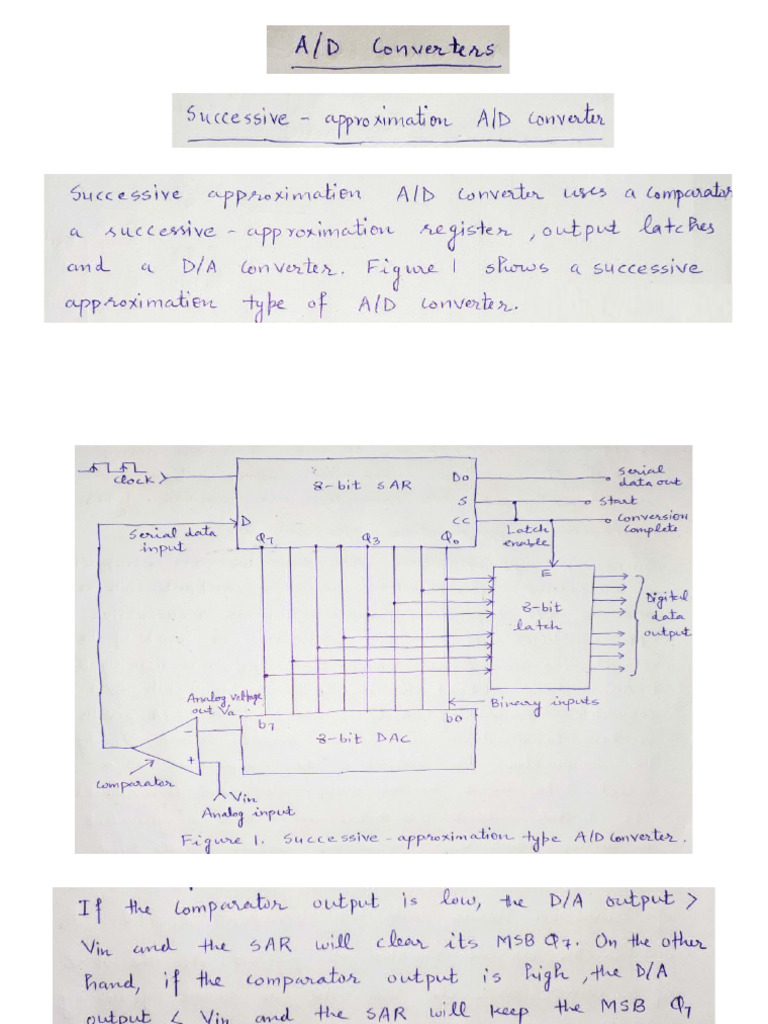 A/D Converters
Successive - approximation A/D converter
Successive approximation A/D converter uses a comparator
a successive - approximation register, output latches
and a D/A converter. Figure 1 shows a successive
approximation type of A/D converter.
clock
8-bit SAR
Do
Serial
data out
S
Start
D
CC
Conversion
complete
Serial data
input
Q7
Q3
Q0
Latch
enable
E
8-bit
latch
Digital
data
output
Analog voltage
out Va
Binary inputs
b7
b0
8-bit DAC
-
+
Comparator
Vin
Analog input
Figure 1. Successive - approximation type A/D converter.
If the comparator output is low, the D/A output >
Vin and the SAR will clear its MSB Q7. On the other
hand, if the comparator output is high, the D/A
output < Vin and the SAR will keep the MSB Q7